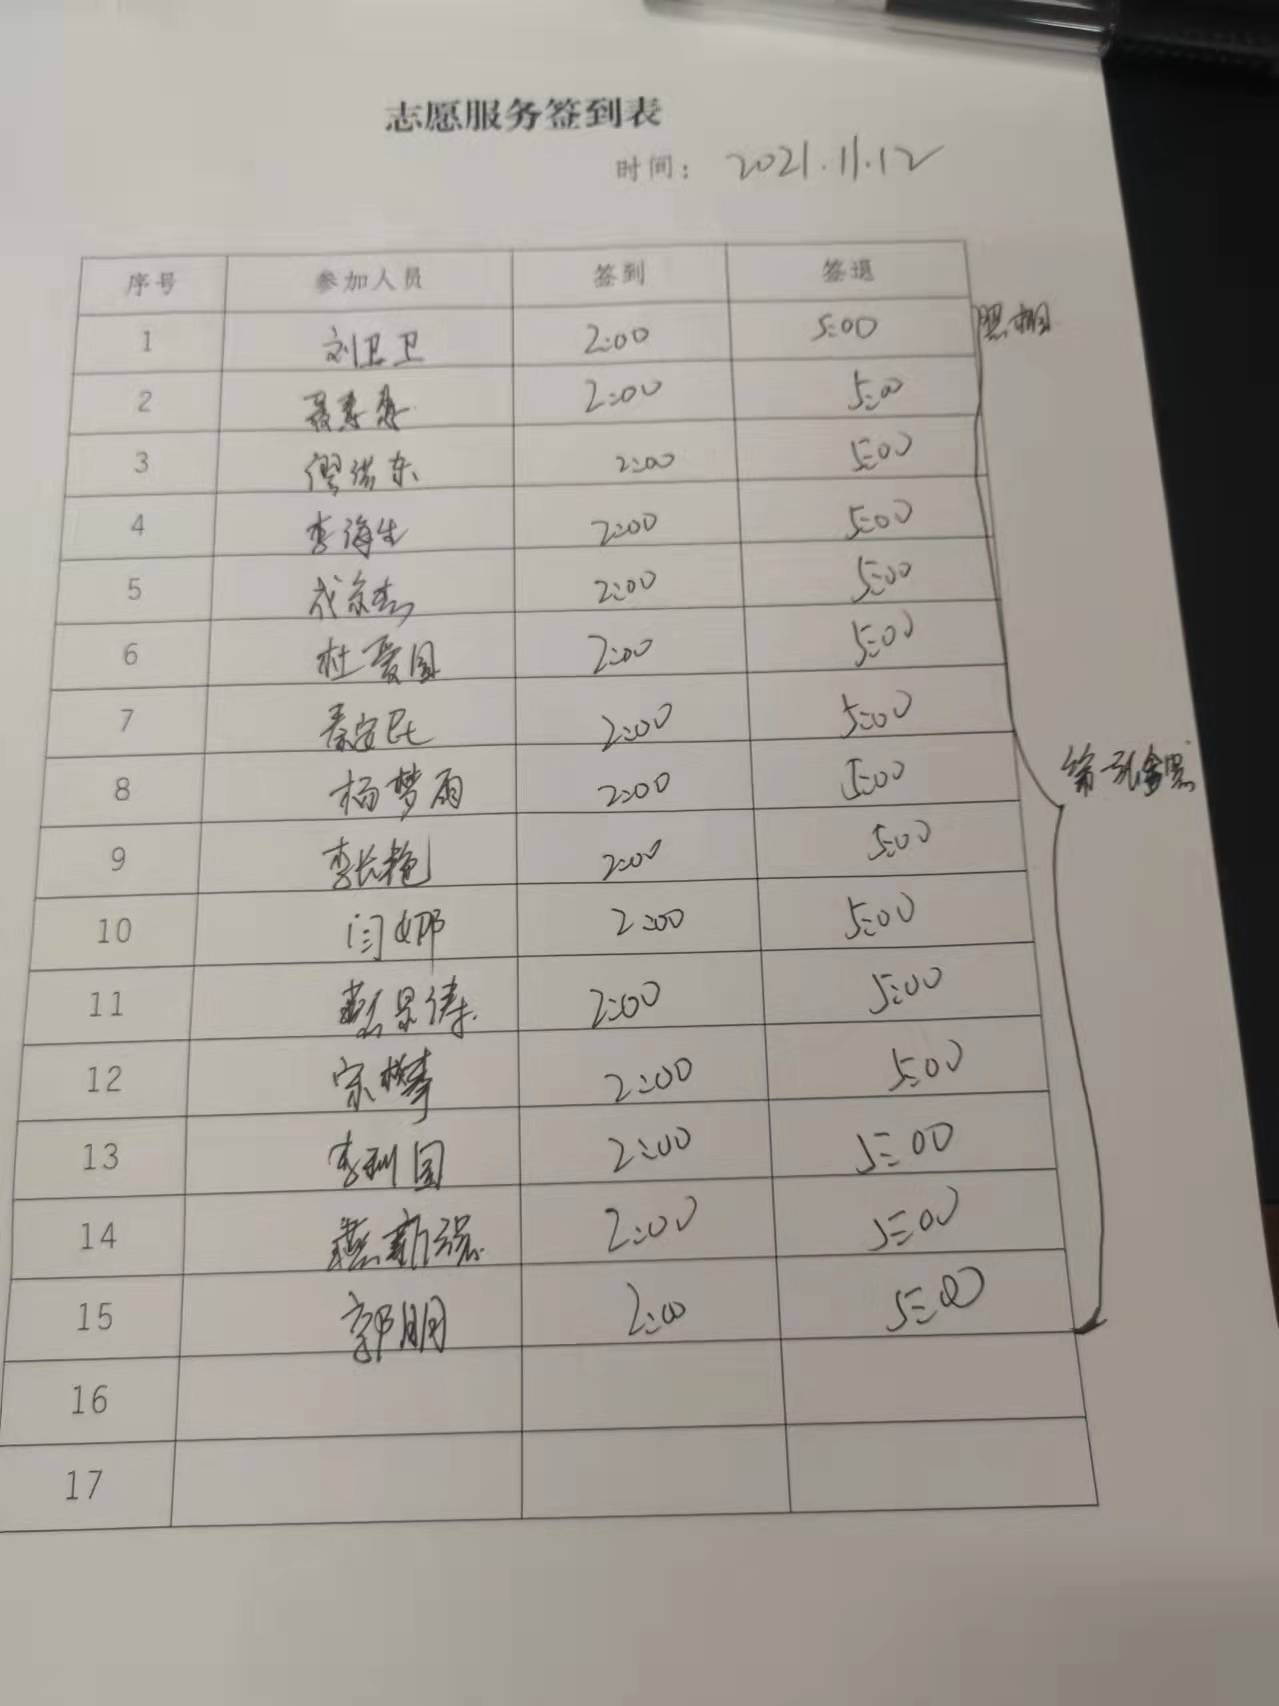 志愿服务签到表
时间： 2021.11.12
序号 参加人员 签到 签退
1 刘卫卫 2:00 5:00 照相
2 聂惠惠 2:00 5:00
3 2:00 5:00
4 李海生 2:00 5:00
5 2:00 5:00
6 杜爱国 2:00 5:00
7 秦安民 2:00 5:00
8 杨梦雨 2:00 5:00
9 李长艳 2:00 5:00
10 闫娜 2:00 5:00
11 2:00 5:00
12 宋攀 2:00 5:00
13 李利国 2:00 5:00
14 燕新强 2:00 5:00
15 郭朋 2:00 5:00
16
17